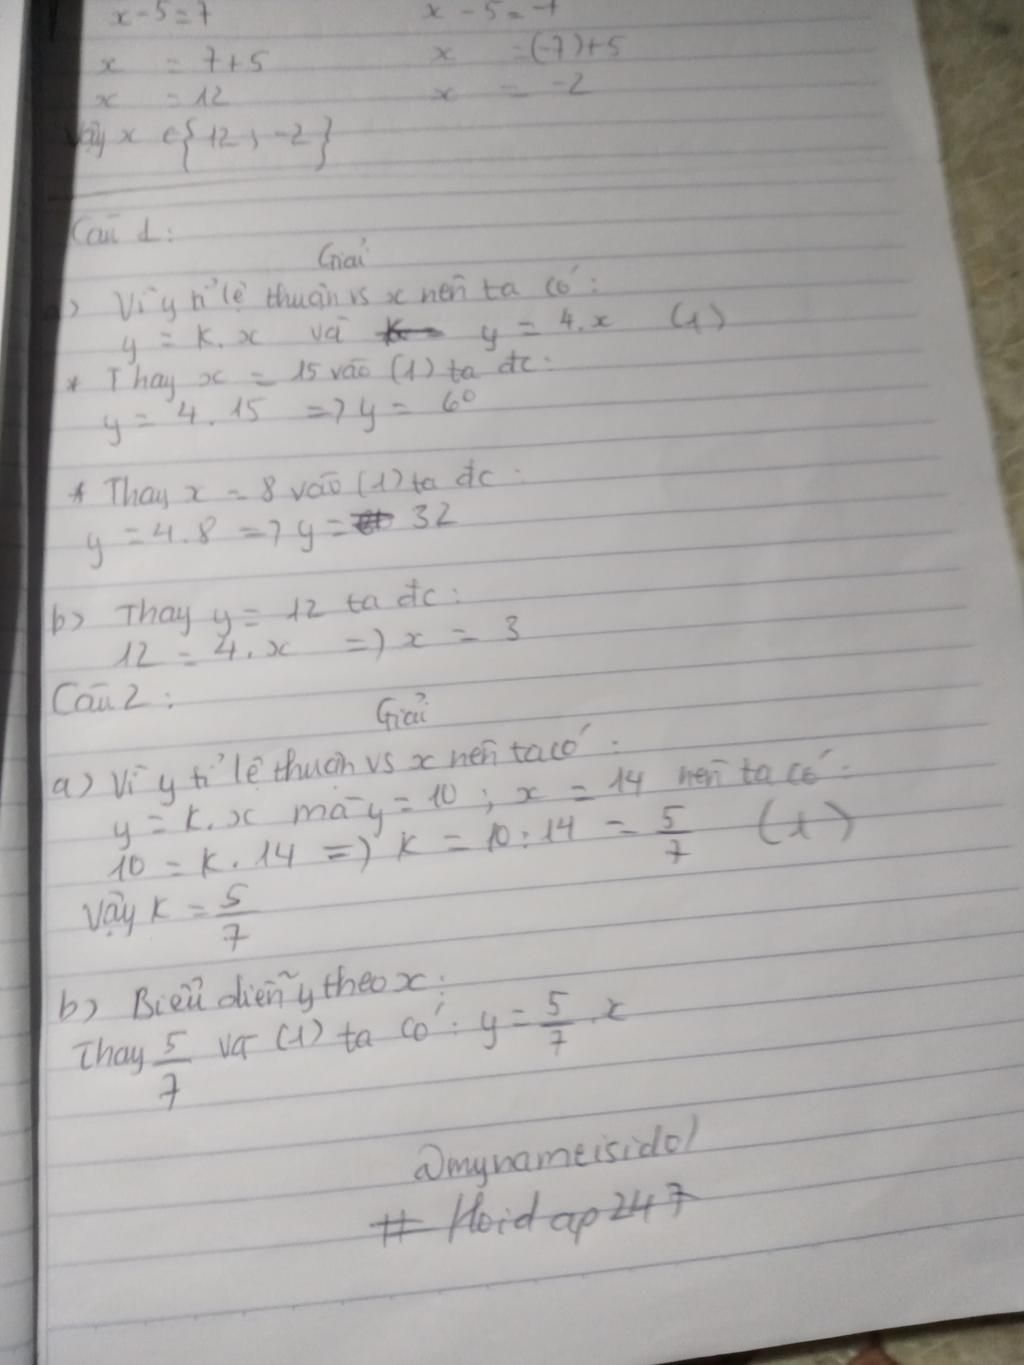 x - 5 = 7    x - 5 = -7
x = 7 + 5    x = (-7) + 5
x = 12    x = -2
Vậy x ∈ {12 ; -2}
Câu 1 :
Giải
a) Vì y tỉ lệ thuận vs x nên ta có :
y = k. x và y = 4. x (1)
* Thay x = 15 vào (1) ta đc :
y = 4 . 15 => y = 60
* Thay x = 8 vào (1) ta đc :
y = 4. 8 => y = 32
b) Thay y = 12 ta đc :
12 = 4. x => x = 3
Câu 2 :
Giải
a) Vì y tỉ lệ thuận vs x nên ta có :
y = k. x mà y = 10 ; x = 14 nên ta có :
10 = k. 14 => k = 10 : 14 = 5/7 (1)
Vậy k = 5/7
b) Biểu diễn y theo x :
Thay 5/7 và (1) ta có : y = 5/7 . x
@mynameisidol
# Hoidap247